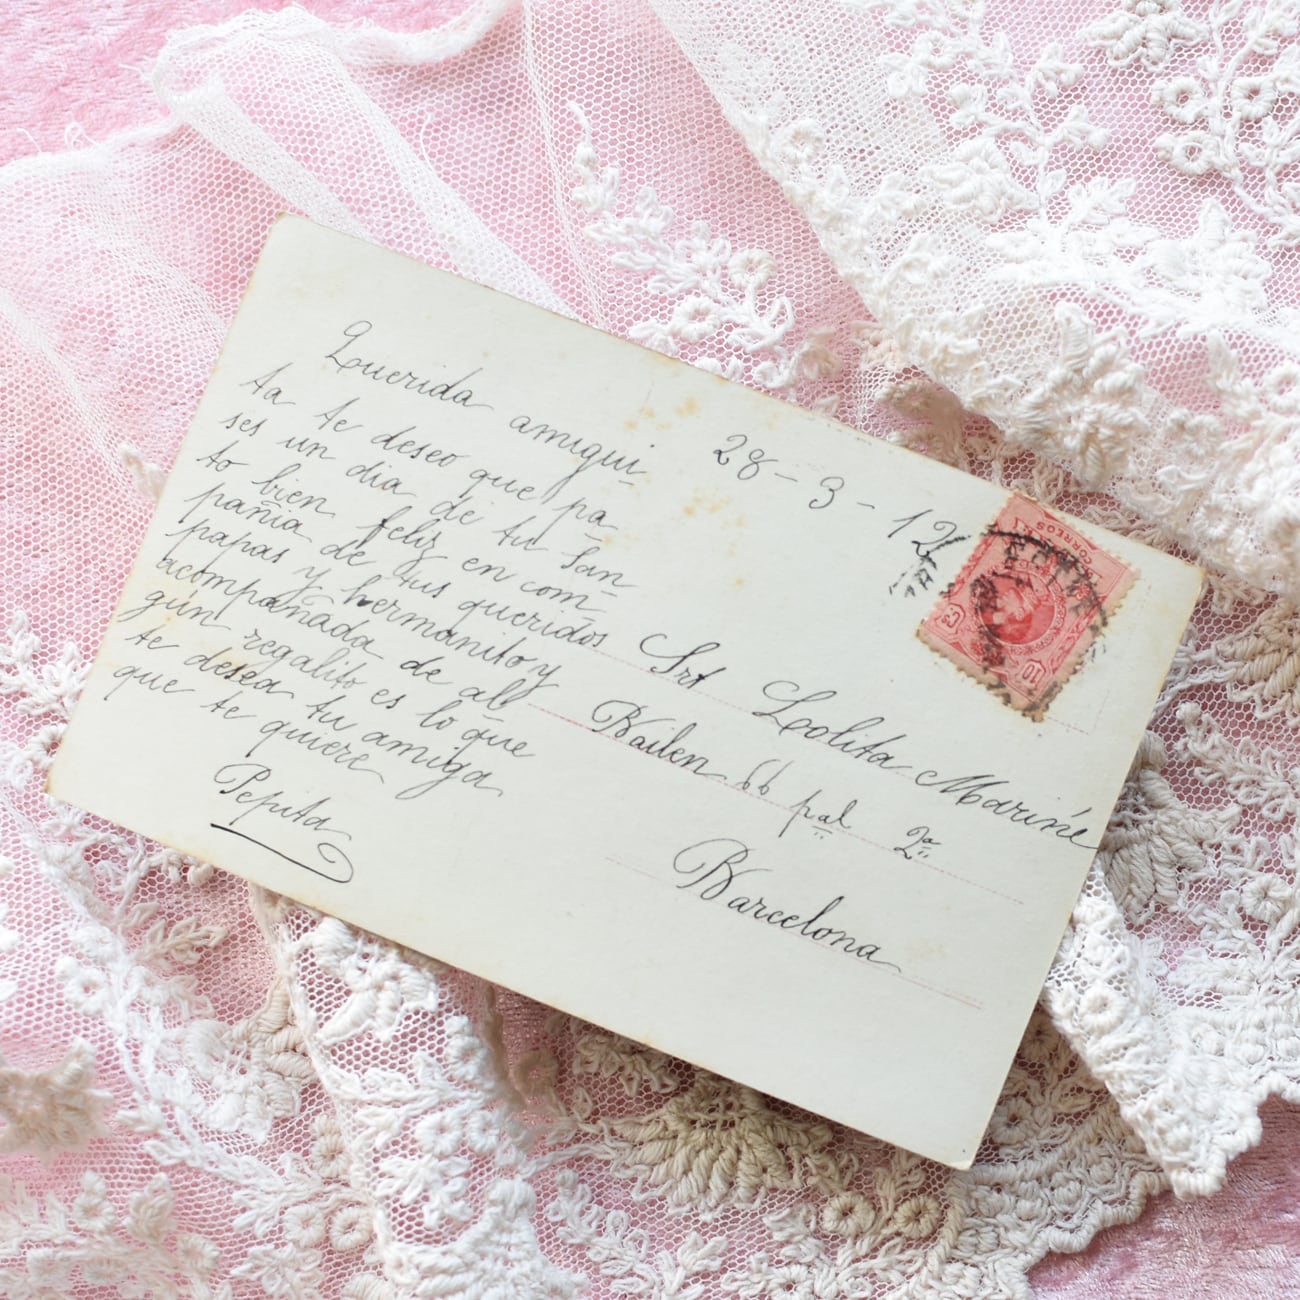 Querida amigui-
ta te deseo que pa-
ses un dia de tu San-
to bien feliz en com-
pañia de tus queridos
papas y hermanito y
acompañada de al-
gún regalito es lo que
te desea tu amiga
que te quiere
Pepita
28-3-12
CORREOS
10
Srt Lolita Mariné
Bailen 66 pal 2ª
Barcelona